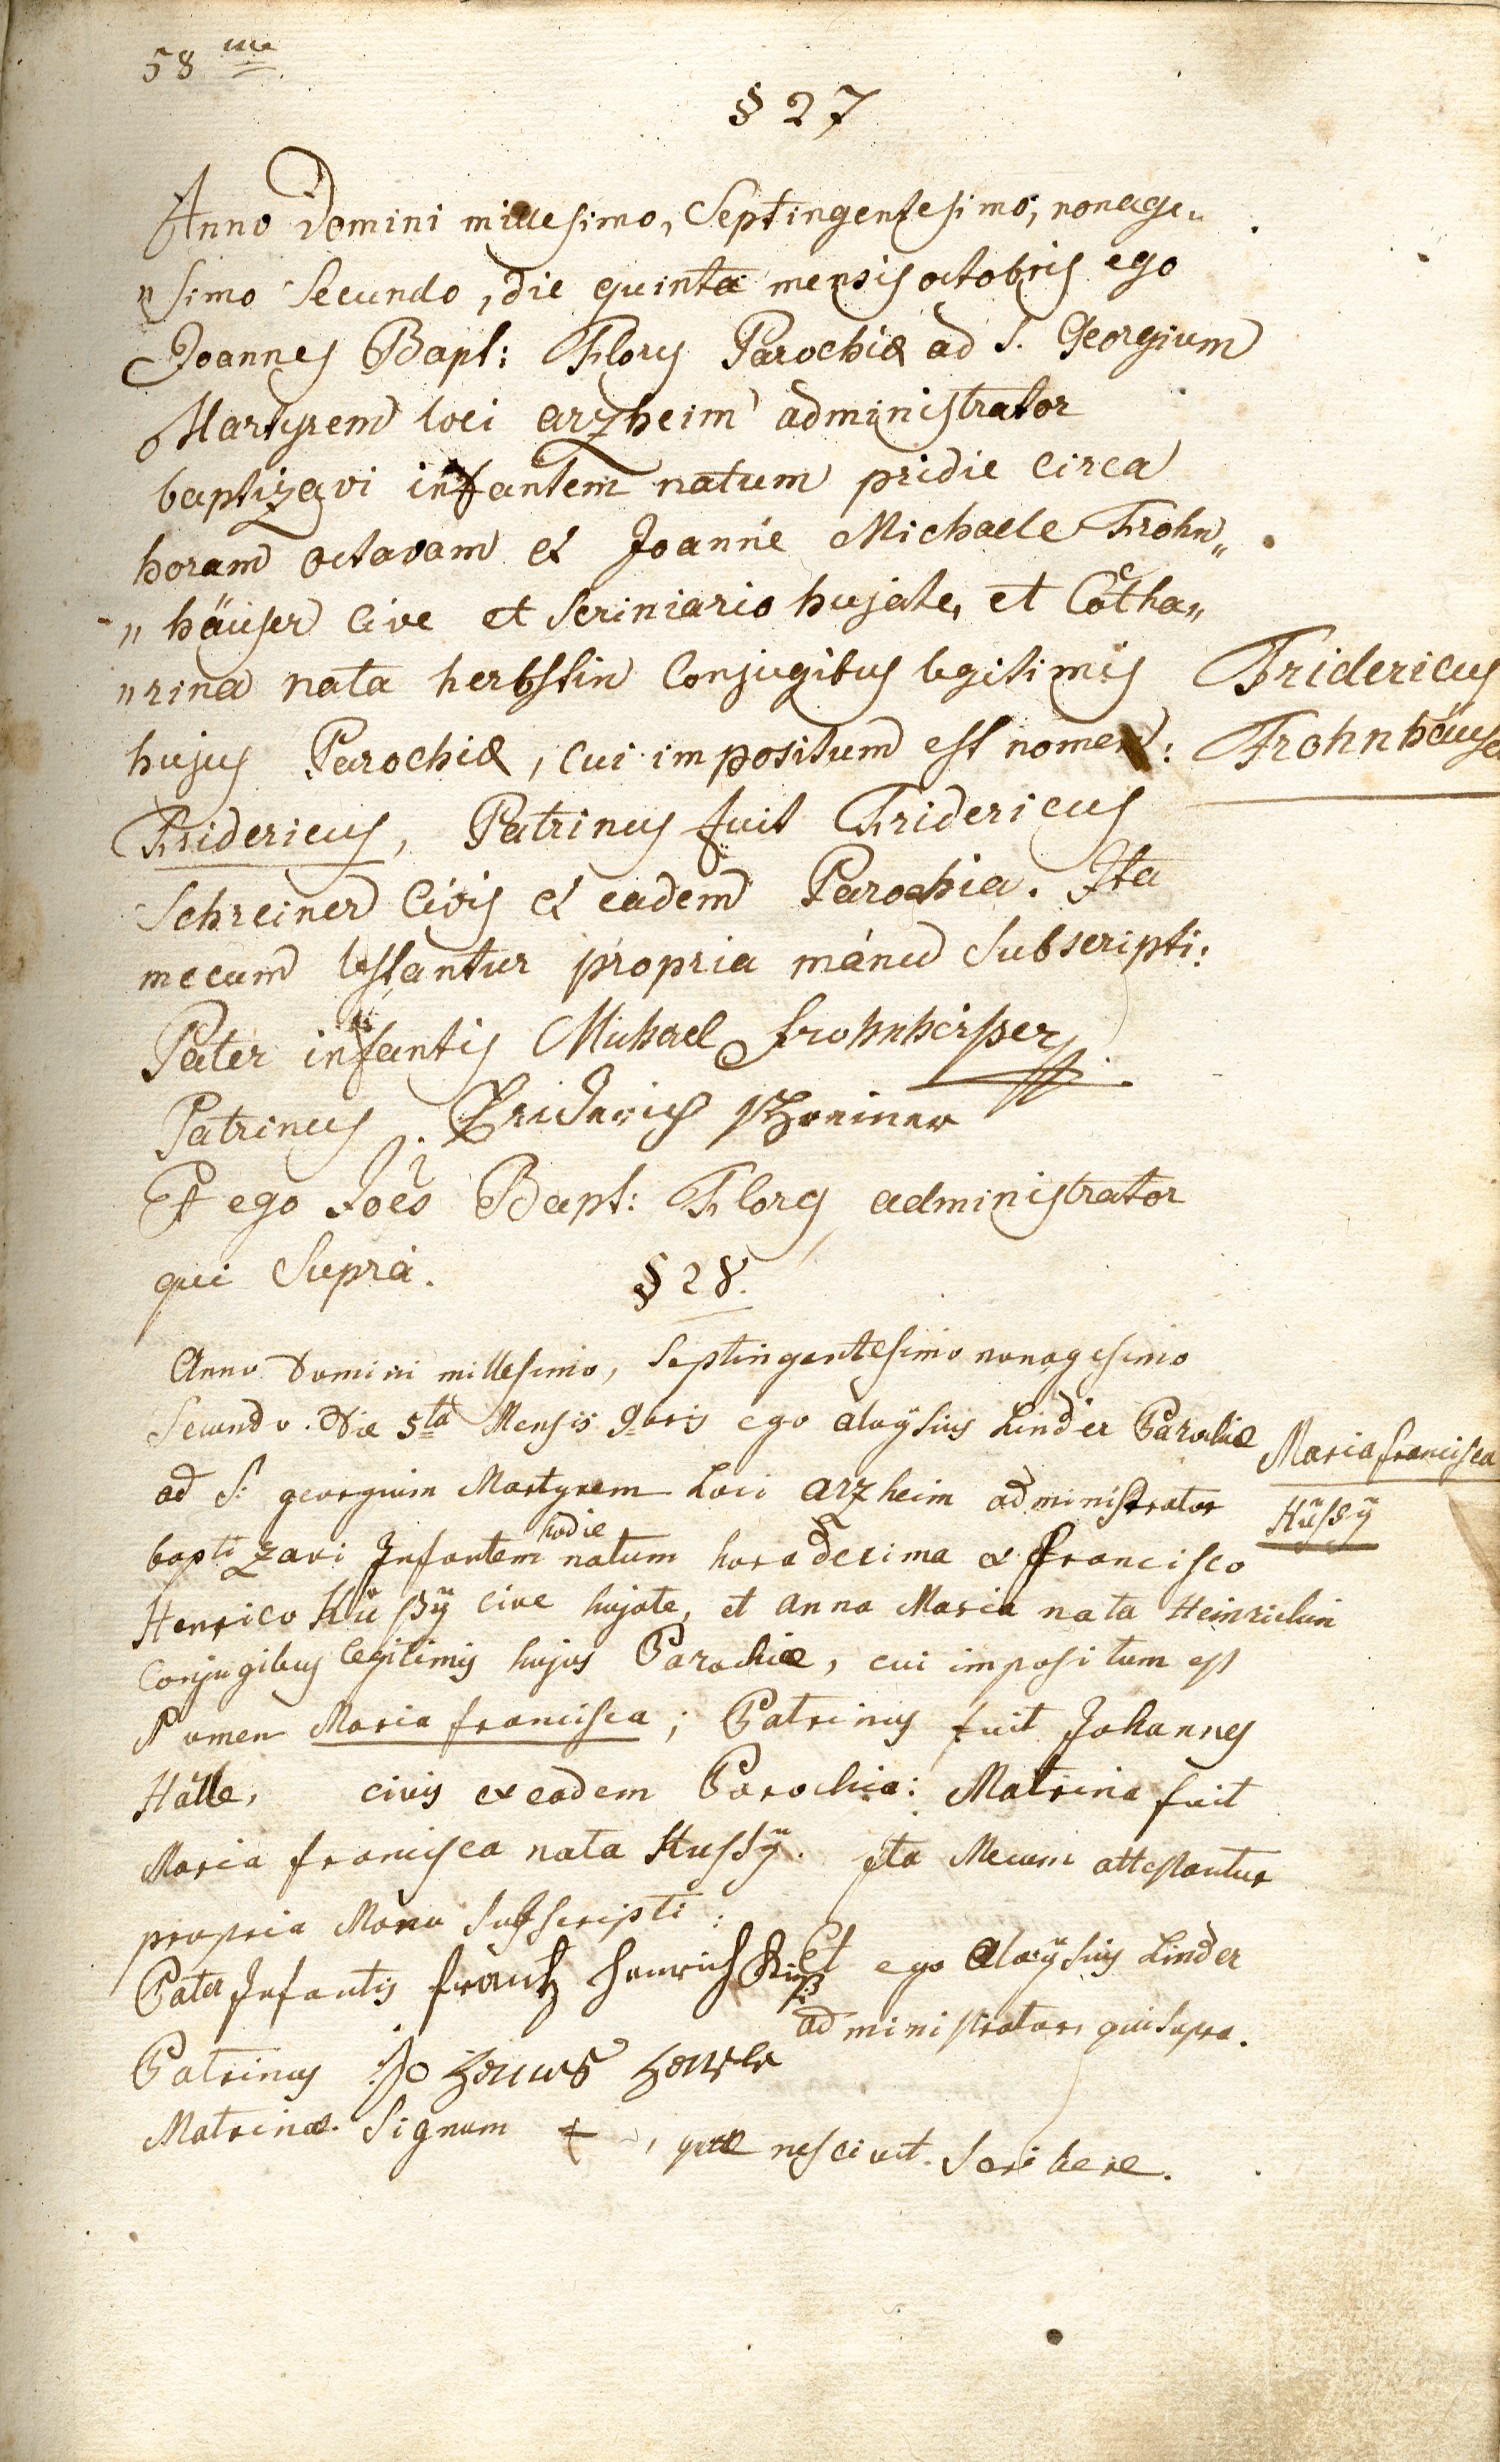 58 me
§ 27
Anno Domini millesimo, Septingentesimo, nonage„
„simo Secundo, die quinta mensis octobris ego
Joannes Bapt: Flory Parochiæ ad S. Georgium
Martyrem loci arzheim administrator
baptizavi infantem natum pridie circa
horam octavam ex Joanne Michaele Frohn„
„häuser cive et scriniario hujate, et Catha„
„rina nata herbstin Conjugibus legitimis
Fridericus
hujus Parochiæ, cui impositum est nomen:
Frohnhäuse
Fridericus, Patrinus fuit Fridericus
Schreiner Civis ex eadem Parochia. Ita
mecum testantur propria manu subscripti:
Pater infantis Michael frohnheisser
Patrinus. Friderich schreiner
Et ego Joes Bapt: Flory administrator
qui Supra.
§ 28.
Anno Domini millesimo, septingentesimo nonagesimo
Secundo. Die 5ta Mensis 9bris ego aloÿsius Linder Parochiæ
ad S: georgium Martyrem Loci arzheim administrator
Maria francisca
Hüssÿ
baptizavi Infantem hodie natum hora decima ex francisco
Henrico Hüßÿ cive hujate, et anna Maria nata Heinrichin
Conjugibus legitimis hujus Parochiæ, cui impositum est
Nomen Maria francisca; Patrinus fuit Johannes
civis ex eadem Parochia: Matrina fuit
Maria francisca nata Hussÿ. Ita Mecum attestantur
propria Manu subscripti:
Pater Infantis frantz henrich
Et ego Aloÿsius Linder
administrator qui supra.
Patrinus Johannes
Matrinæ. Signum + , quæ nescivit. Scribere.